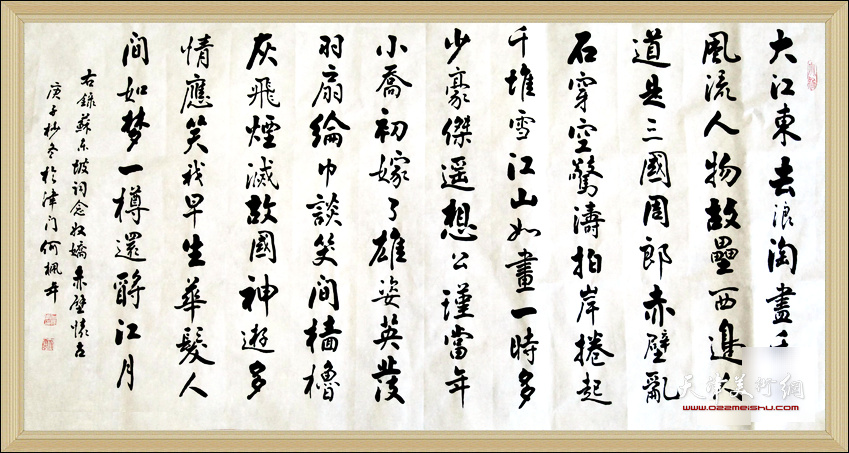 大江東去浪淘盡千
風流人物故壘西邊人
道是三國周郎赤壁亂
石穿空驚濤拍岸捲起
千堆雪江山如畫一時多
少豪傑遥想公瑾當年
小喬初嫁了雄姿英發
羽扇綸巾談笑间檣櫓
灰飛煙滅故國神遊多
情應笑我早生華髮人
间如梦一樽還酹江月
右錄蘇东坡词念奴嬌赤壁懷古
庚子杪冬於津门何枫书
天津美術網
www.022meishu.com